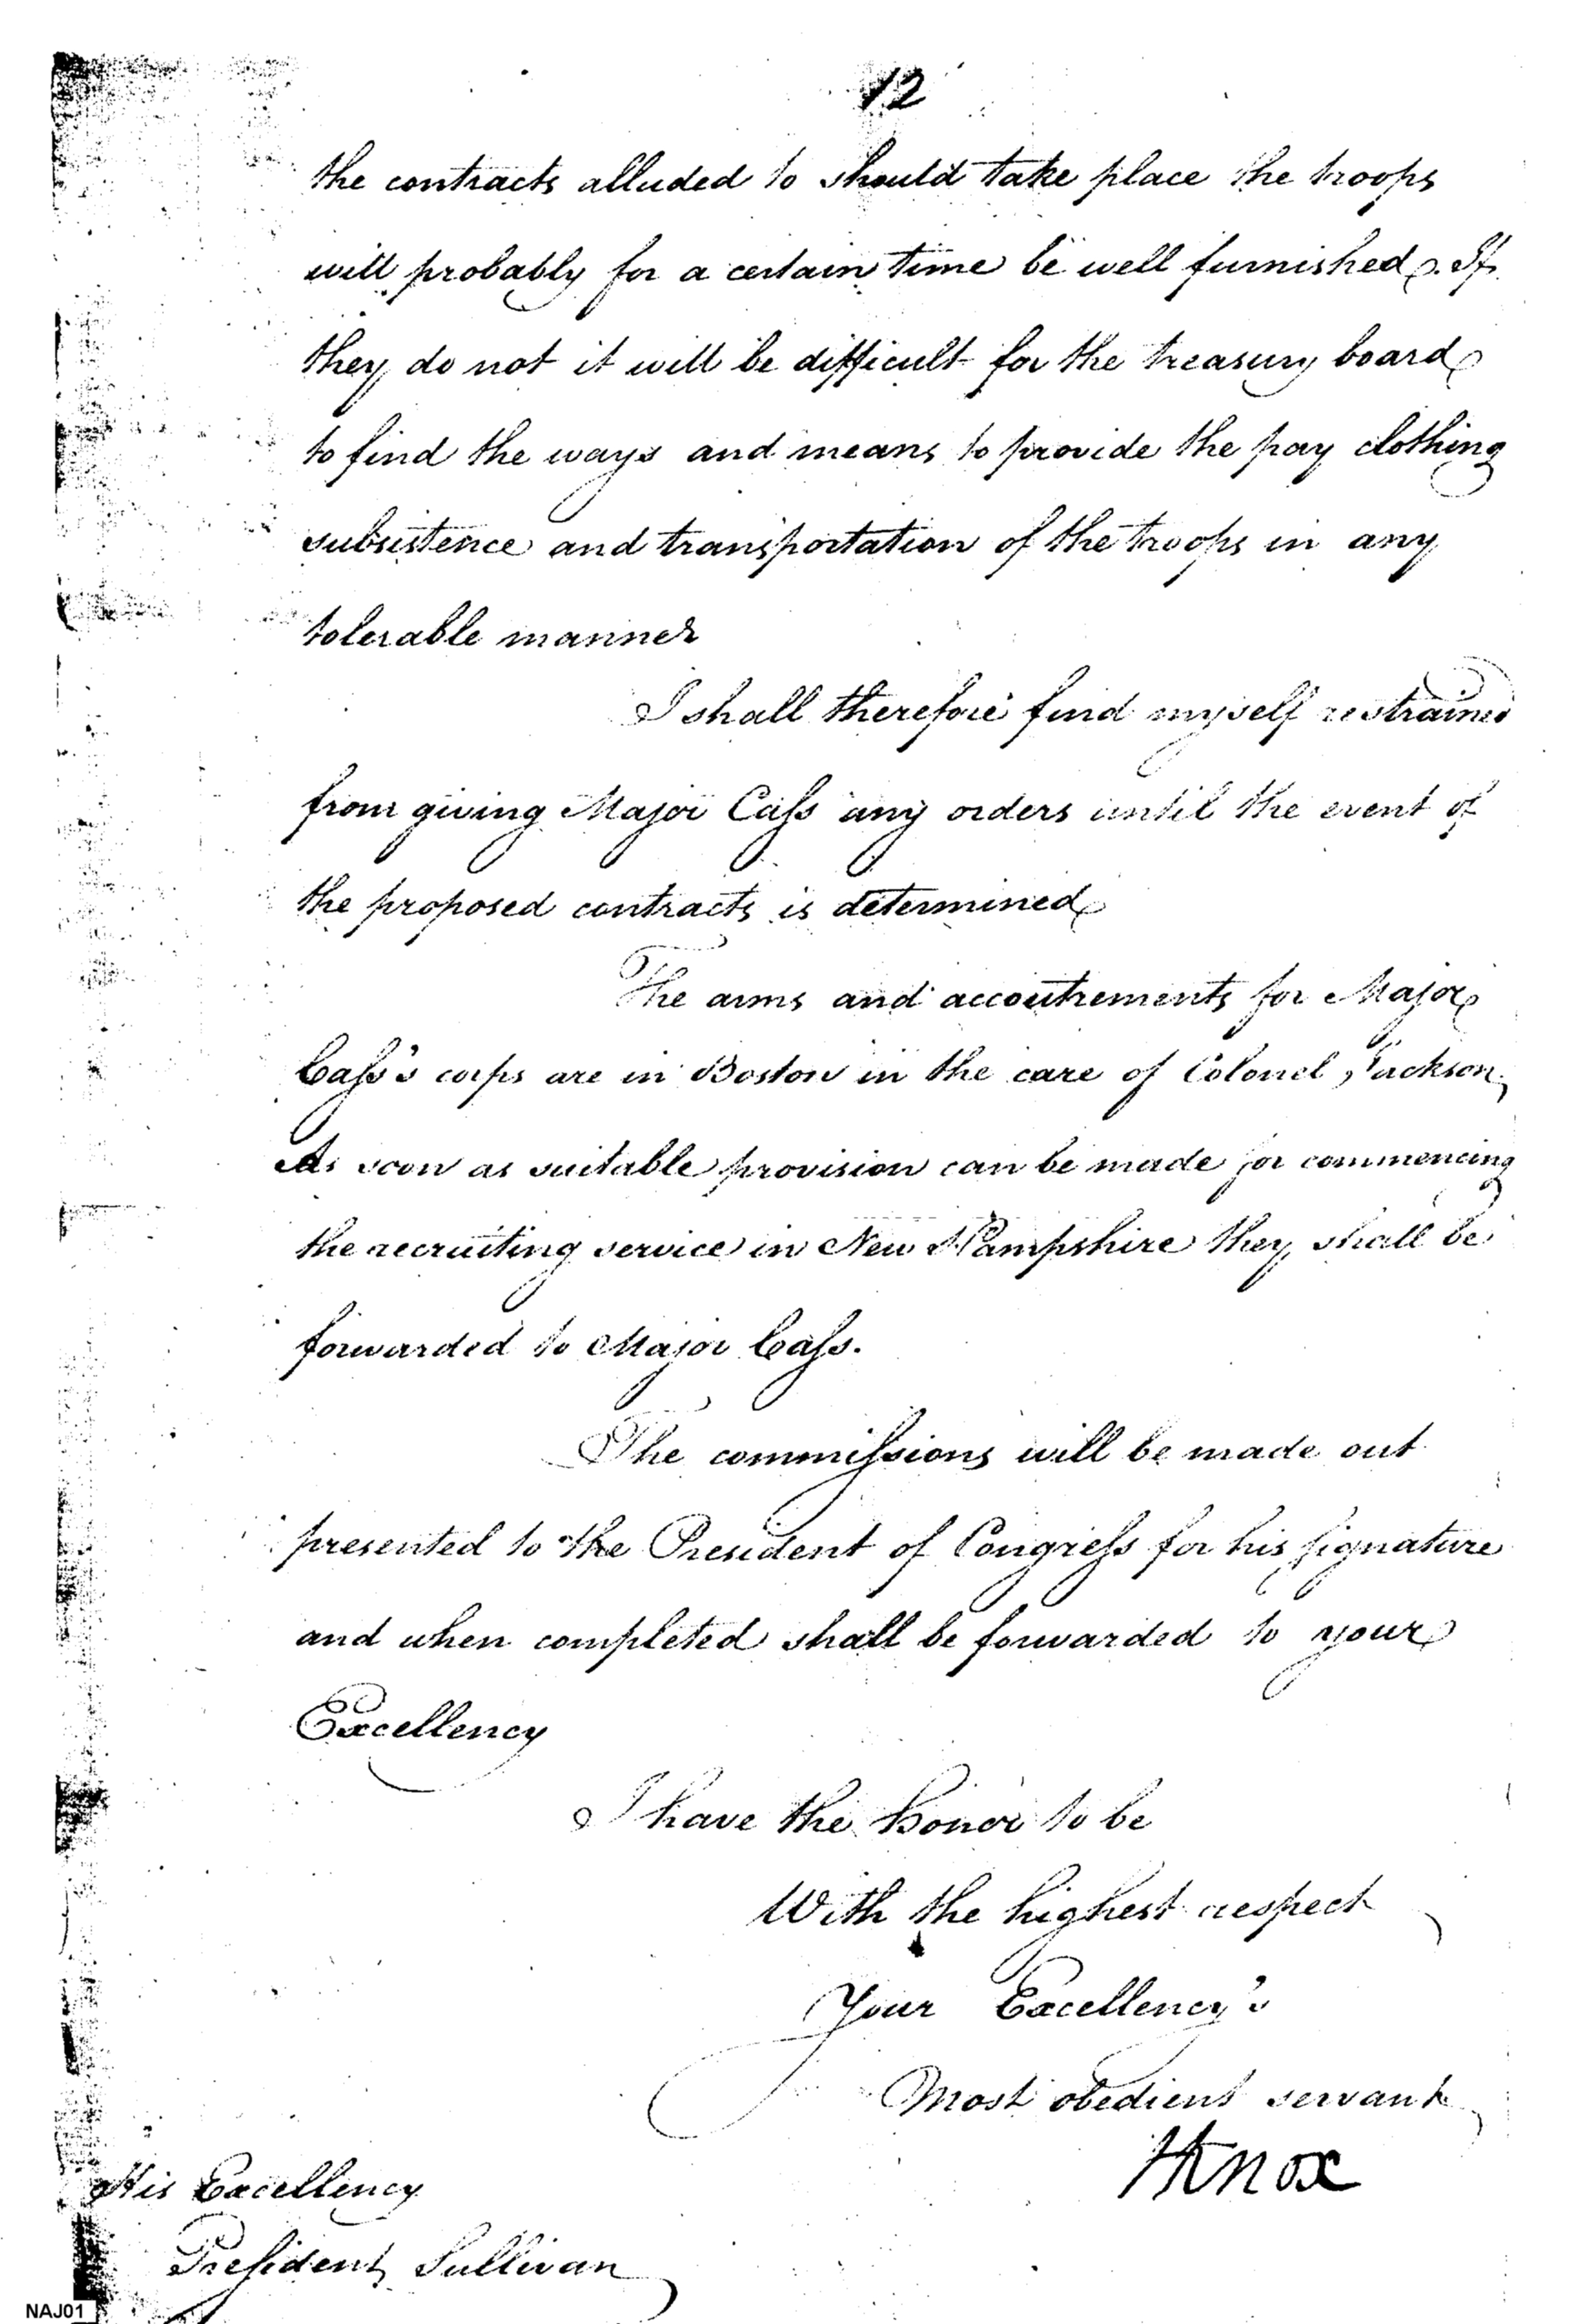 12
the contracts alluded to should take place the troops
will probably for a certain time be well furnished. If
they do not it will be difficult for the treasury board
to find the ways and means to provide the pay clothing
subsistence and transportation of the troops in any
tolerable manner
I shall therefore find myself restrained
from giving Major Caſs any orders until the event of
the proposed contracts is determined
The arms and accoutrements for Major
Caſs's corps are in Boston in the care of Colonel Jackson.
As soon as suitable provision can be made for commencing
the recruiting service in New Hampshire they shall be
forwarded to Major Caſs.
The commiſsions will be made out
presented to the President of Congreſs for his ſignature
and when completed shall be forwarded to your
Excellency
I have the honor to be
With the highest respect
Your Excellency's
Most obedient servant
HKnox
His Excellency
Preſident Sullivan
NAJ01